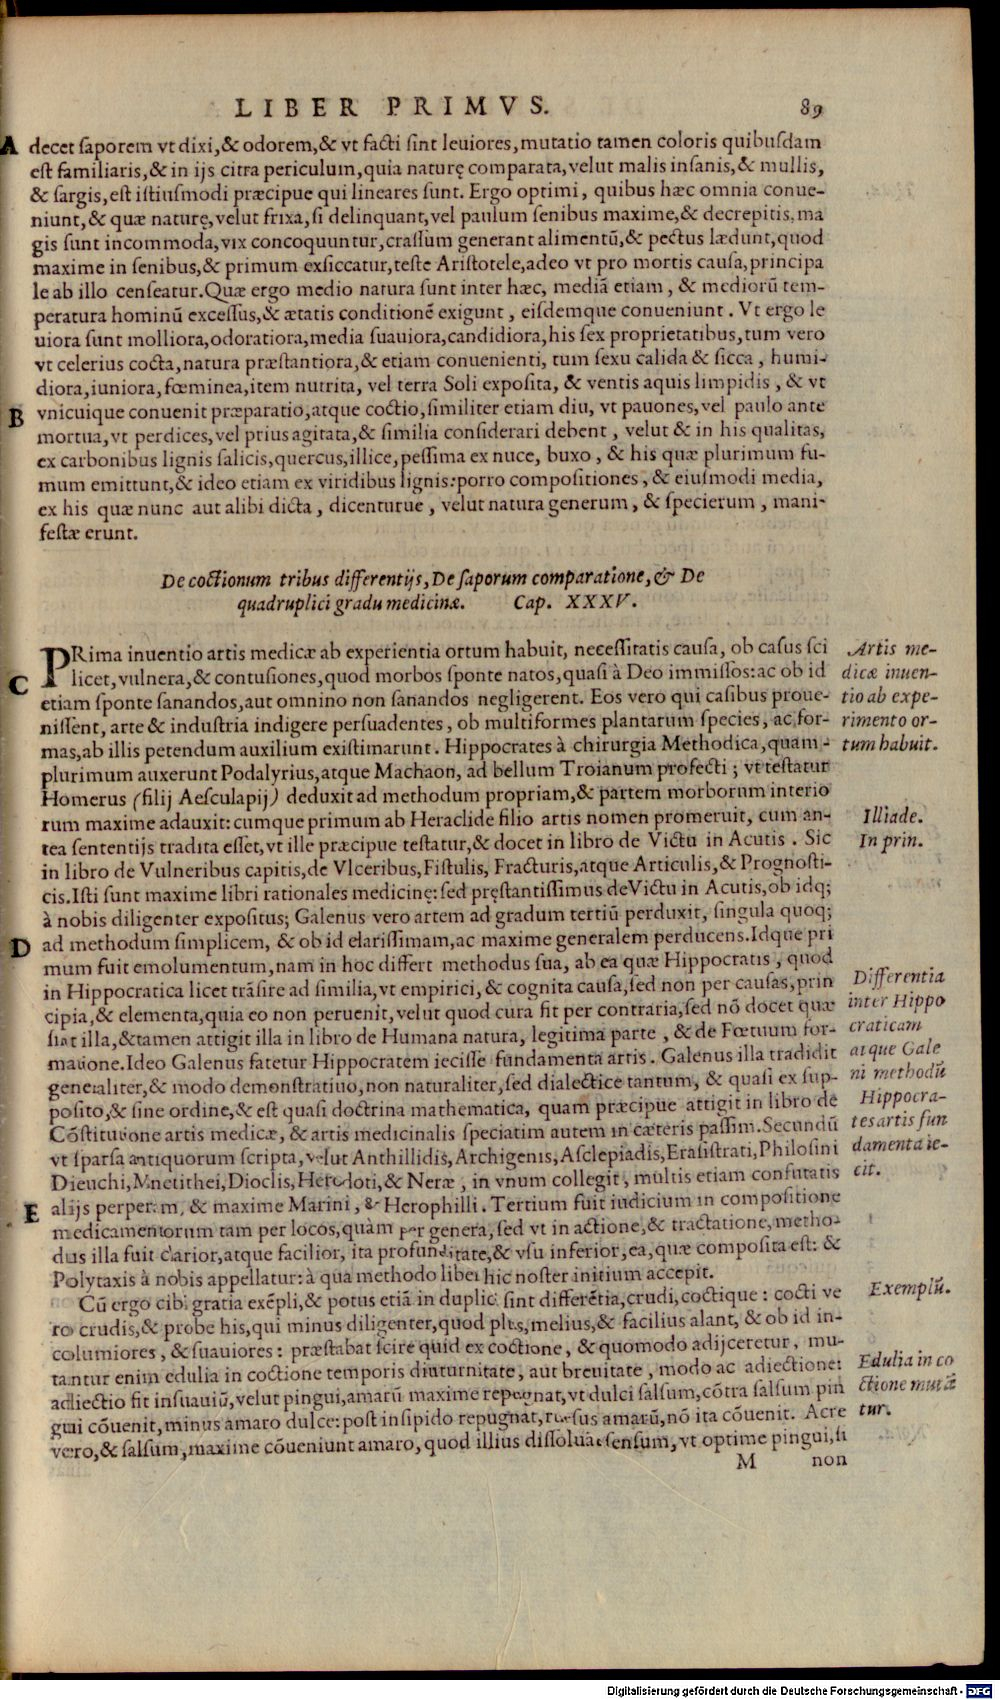 LIBER PRIMVS. 89
A decet saporem vt dixi,& odorem,& vt facti sint leuiores, mutatio tamen coloris quibusdam
est familiaris,& in ijs citra periculum, quia naturę comparata, velut malis insanis,& mullis,
& sargis, est istiusmodi præcipue qui lineares sunt. Ergo optimi, quibus hæc omnia conue-
niunt,& quæ naturę, velut frixa, si delinquant, vel paulum senibus maxime,& decrepitis, ma
gis sunt incommoda, vix concoquuntur, crassum generant alimentū,& pectus lædunt, quod
maxime in senibus,& primum exsiccatur, teste Aristotele, adeo vt pro mortis causa, principa
le ab illo censeatur. Quæ ergo medio natura sunt inter hæc, mediā etiam, & mediorū tem-
peratura hominū excessus,& ætatis conditionē exigunt, eisdemque conueniunt. Vt ergo le
uiora sunt molliora, odoratiora, media suauiora, candidiora, his sex proprietatibus, tum vero
vt celerius cocta, natura præstantiora,& etiam conuenienti, tum sexu calida & sicca, humi-
diora, iuniora, fœminea, item nutrita, vel terra Soli exposita, & ventis aquis limpidis, & vt
B vnicuique conuenit præparatio, atque coctio, similiter etiam diu, vt pauones, vel paulo ante
mortua, vt perdices, vel prius agitata,& similia considerari debent, velut & in his qualitas,
ex carbonibus lignis salicis, quercus, illice, pessima ex nuce, buxo, & his quæ plurimum fu-
mum emittunt,& ideo etiam ex viridibus lignis: porro compositiones, & eiusmodi media,
ex his quæ nunc aut alibi dicta, dicenturue, velut natura generum, & specierum, mani-
festæ erunt.
De coctionum tribus differentijs, De saporum comparatione, & De
quadruplici gradu medicinæ. Cap. XXXV.
PRima inuentio artis medicæ ab experientia ortum habuit, necessitatis causa, ob casus sci
C licet, vulnera,& contusiones, quod morbos sponte natos, quasi à Deo immissos: ac ob id
etiam sponte sanandos, aut omnino non sanandos negligerent. Eos vero qui casibus proue-
nissent, arte & industria indigere persuadentes, ob multiformes plantarum species, ac for-
mas, ab illis petendum auxilium existimarunt. Hippocrates à chirurgia Methodica, quam-
plurimum auxerunt Podalyrius, atque Machaon, ad bellum Troianum profecti; vt testatur
Homerus (filij Aesculapij) deduxit ad methodum propriam,& partem morborum interio
rum maxime adauxit: cumque primum ab Heraclide filio artis nomen promeruit, cum an-
tea sententijs tradita esset, vt ille præcipue testatur,& docet in libro de Victu in Acutis. Sic
in libro de Vulneribus capitis, de Vlceribus, Fistulis, Fracturis, atque Articulis,& Prognosti-
cis. Isti sunt maxime libri rationales medicinę: sed pręstantissimus de Victu in Acutis, ob idq;
à nobis diligenter expositus; Galenus vero artem ad gradum tertiū perduxit, singula quoq;
D ad methodum simplicem, & ob id clarissimam, ac maxime generalem perducens. Idque pri
mum fuit emolumentum, nam in hoc differt methodus sua, ab ea quæ Hippocratis, quod
in Hippocratica licet trāsire ad similia, vt empirici, & cognita causa, sed non per causas, prin
cipia,& elementa, quia eo non peruenit, velut quod cura fit per contraria, sed nō docet quæ
sint illa,& tamen attigit illa in libro de Humana natura, legitima parte, & de Fœtuum for-
matione. Ideo Galenus fatetur Hippocratem iecisse fundamenta artis. Galenus illa tradidit
generaliter,& modo demonstratiuo, non naturaliter, sed dialectice tantum, & quasi ex sup-
posito,& sine ordine,& est quasi doctrina mathematica, quam præcipue attigit in libro de
Cōstitutione artis medicæ, & artis medicinalis speciatim autem in cæteris passim. Secundū
vt sparsa antiquorum scripta, velut Anthillidis, Archigenis, Asclepiadis, Erasistrati, Philosini
Dieuchi, Mnetithei, Dioclis, Herodoti,& Neræ, in vnum collegit, multis etiam confutatis
E alijs perperam, & maxime Marini, & Herophilli. Tertium fuit iudicium in compositione
medicamentorum tam per locos, quàm per genera, sed vt in actione,& tractatione, metho-
dus illa fuit clarior, atque facilior, ita profunditate,& vsu inferior, ea, quæ composita est: &
Polytaxis à nobis appellatur: à qua methodo liber hic noster initium accepit.
Cū ergo cibi gratia exēpli,& potus etiā in duplici sint differētia, crudi, coctique: cocti ve
ro crudis,& probe his, qui minus diligenter, quod plus, melius,& facilius alant, & ob id in-
columiores, & suauiores: præstabat scire quid ex coctione, & quomodo adijceretur, mu-
tantur enim edulia in coctione temporis diuturnitate, aut breuitate, modo ac adiectione:
adiectio fit insuauiū, velut pingui, amarū maxime repugnat, vt dulci salsum, cōtra salsum pin
gui cōuenit, minus amaro dulce: post insipido repugnat, rursus amarū, nō ita cōuenit. Acre
vero,& salsum, maxime cōueniunt amaro, quod illius dissoluat sensum, vt optime pingui, si
M non
Artis me-
dicæ inuen-
tio ab expe-
rimento or-
tum habuit.
Illiade.
In prin.
Differentia
inter Hippo
craticam
atque Gale
ni methodū
Hippocra-
tes artis fun
damenta ie-
cit.
Exemplū.
Edulia in co
ctione mutā
tur.
Digitalisierung gefördert durch die Deutsche Forschungsgemeinschaft - DFG